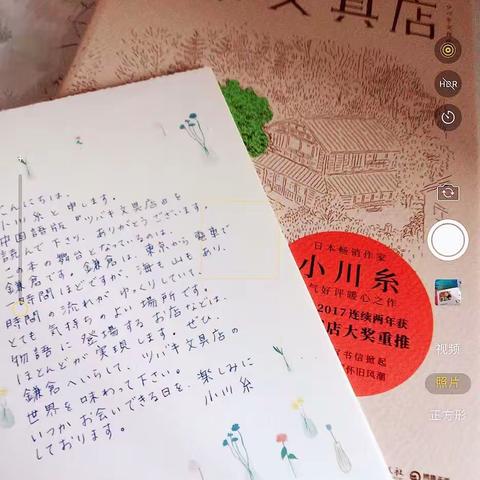 文具店
こんにちは。
小川糸と申します。
中国語版『ツバキ文具店』を
読んで下さり、ありがとうございます。
この本の舞台となっているのは、
鎌倉です。鎌倉は、東京から電車で
一時間ほどですが、海も山もあり、
時間の流れがゆっくりしていて、
とても気持ちのよい場所です。
物語に登場するお店などは、
ほとんどが実現します。ぜひ、
鎌倉へいらして、ツバキ文具店の
世界を味わって下さい。
いつかお会いできる日を、楽しみに
しております。
小川糸
日本畅销作家
小川糸
气好评暖心之作
2017连续两年获
店大奖重推
书信掀起
怀旧风潮
HDR
视频
照片
正方形